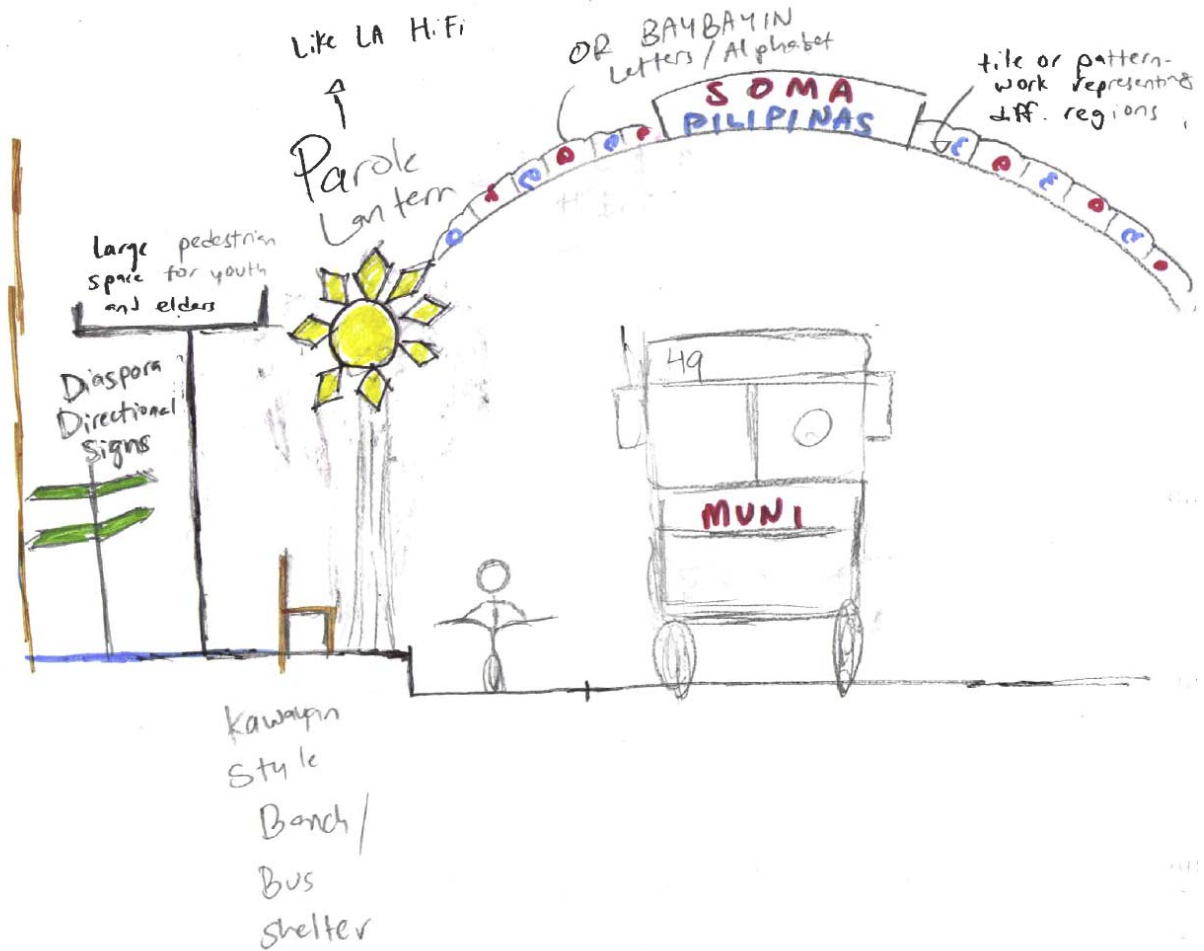 Like LA HiFi
Parole
Lantern
OR BAYBAYIN
Letters/Alphabet
SOMA
PILIPINAS
tile or pattern-
work representing
diff. regions
Large pedestrian
space for youth
and elders
Diaspora
Directional
Signs
49
MUNI
Kawayan
Style
Bench/
Bus
Shelter